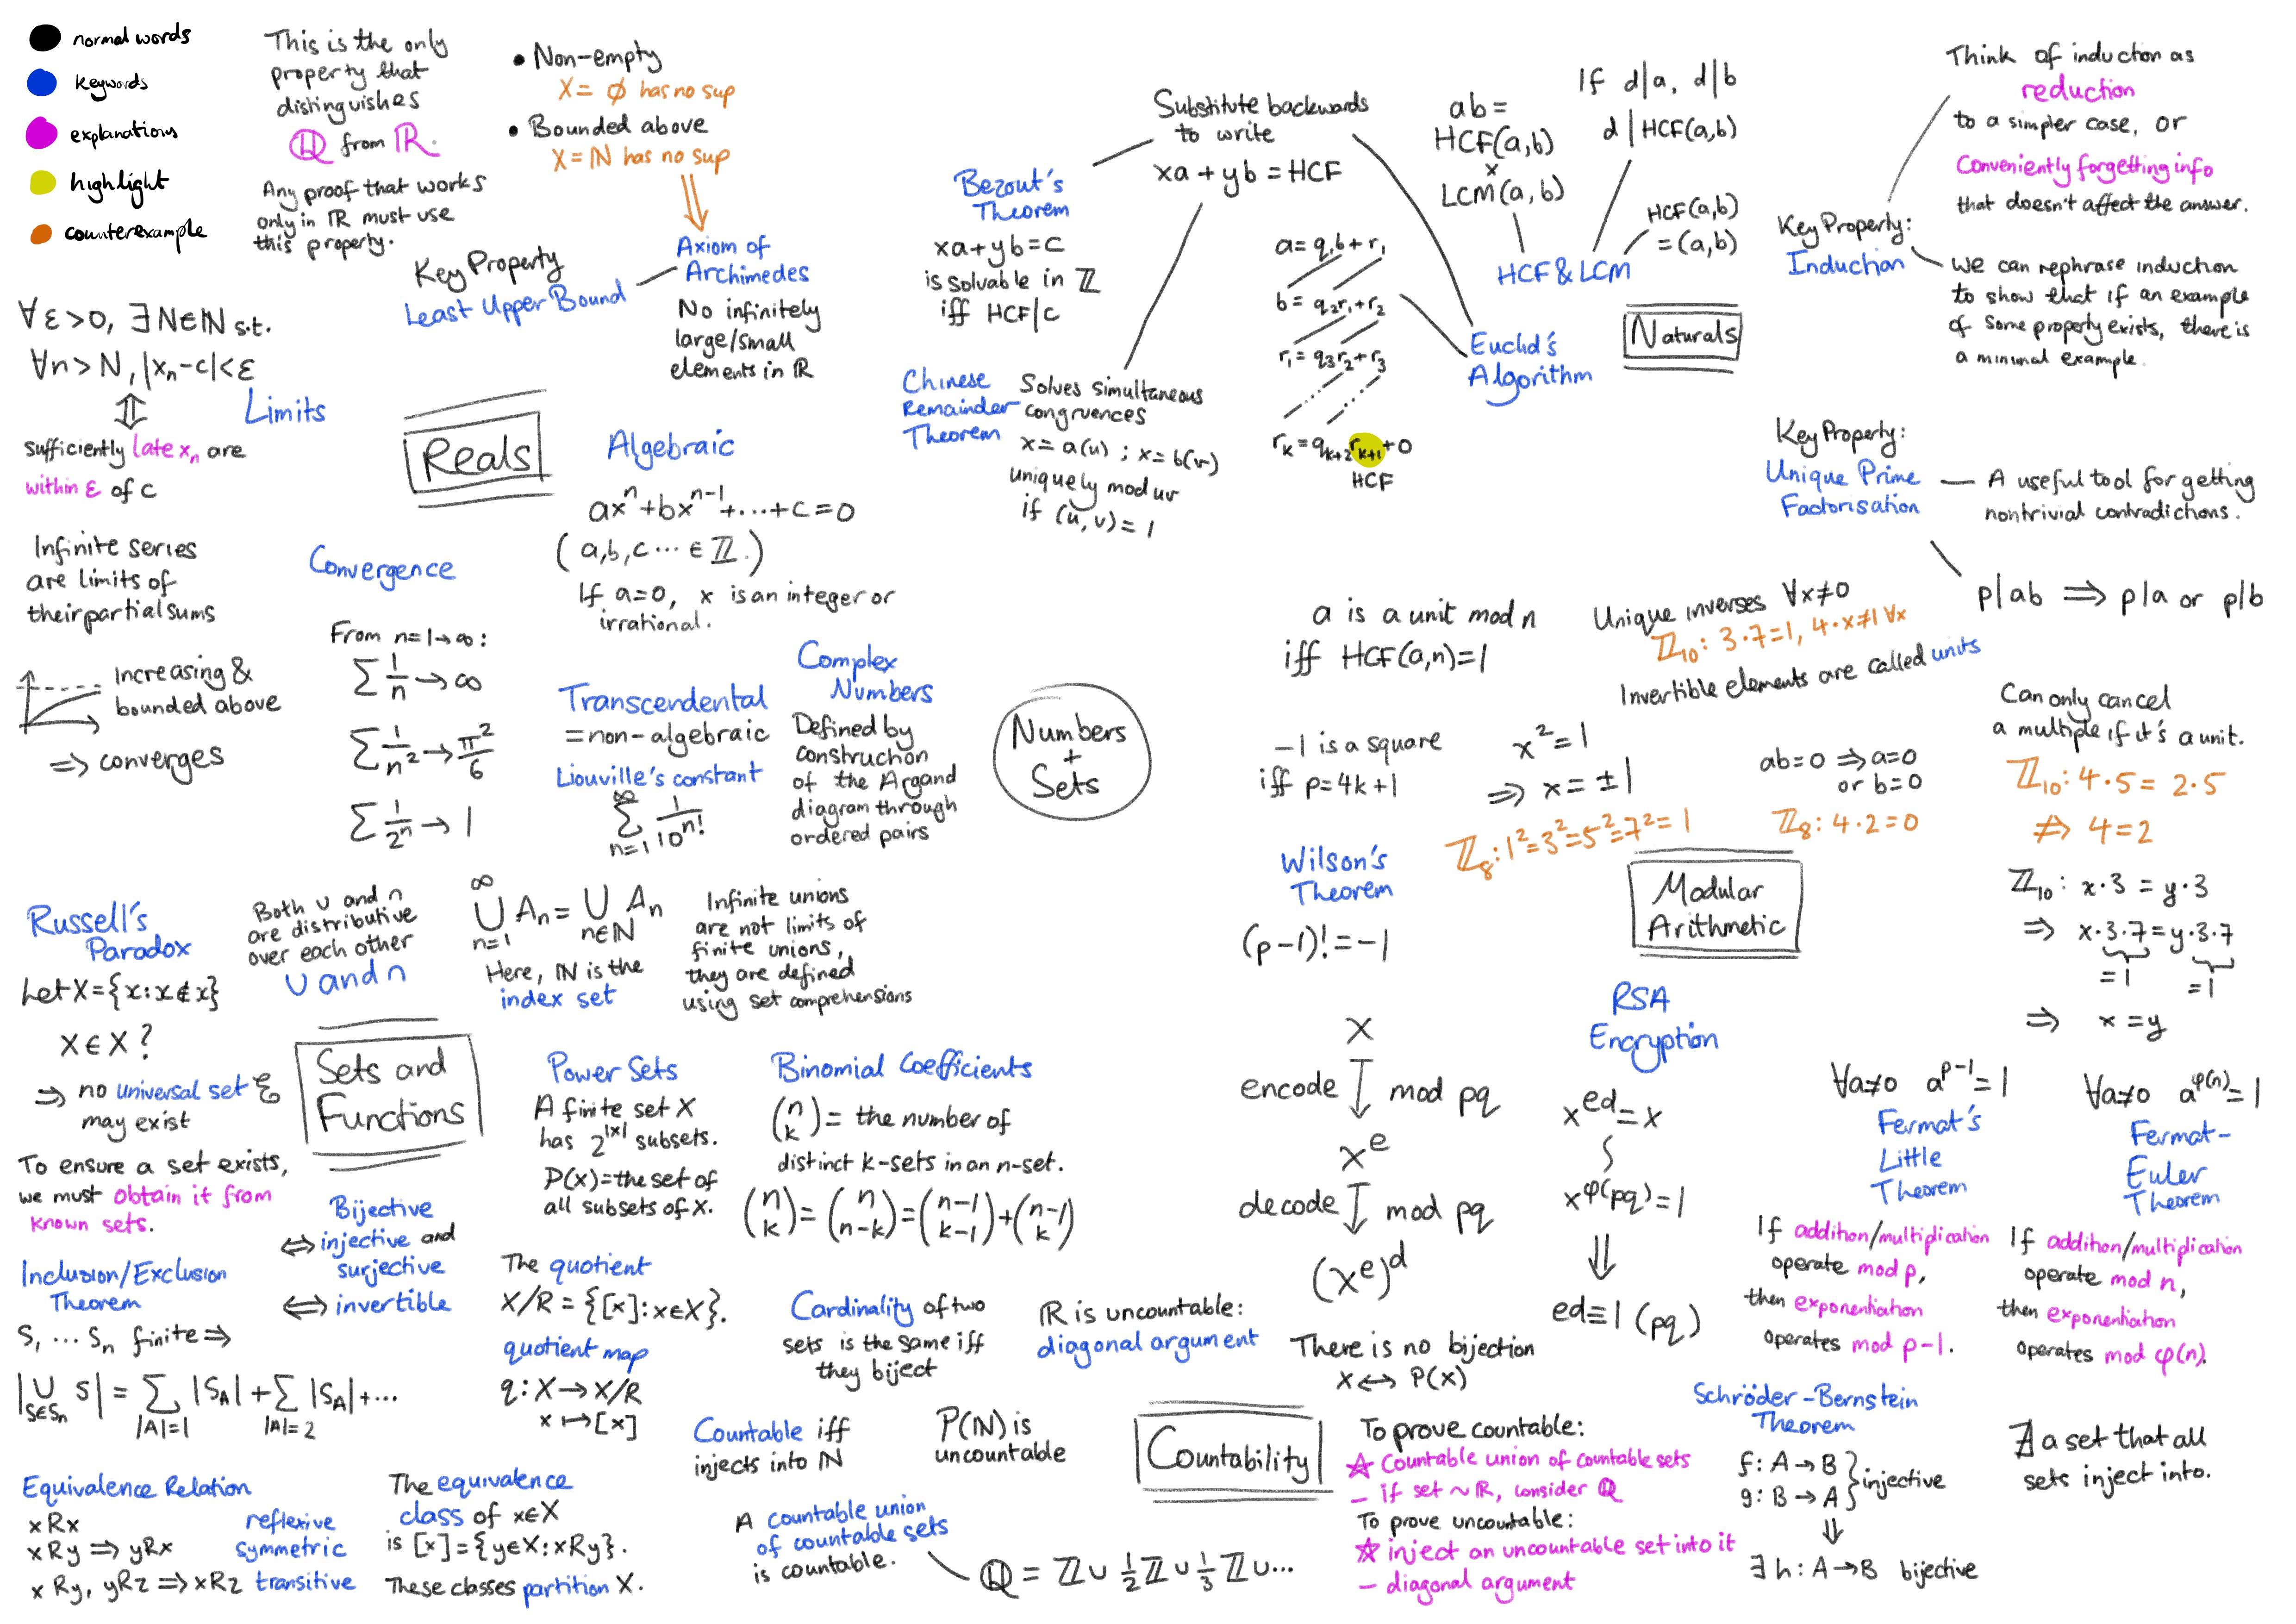 normal words
keywords
explanations
highlight
counterexample
This is the only
property that
distinguishes
ℚ from ℝ.
Any proof that works
only in ℝ must use
this property.
• Non-empty
X = ∅ has no sup
• Bounded above
X = ℕ has no sup
Key Property
Least Upper Bound
Axiom of
Archimedes
No infinitely
large/small
elements in ℝ
∀ε>0, ∃N∈ℕ s.t.
∀n>N, |xₙ-c|<ε
⇕
Limits
sufficiently late xₙ are
within ε of c
Reals
Infinite series
are limits of
their partial sums
Increasing &
bounded above
⇒ converges
Convergence
From n=1→∞:
∑ 1/n → ∞
∑ 1/n² → π²/6
∑ 1/2ⁿ → 1
Algebraic
axⁿ+bxⁿ⁻¹+...+c=0
(a,b,c... ∈ ℤ.)
If a=0, x is an integer or
irrational.
Transcendental
=non-algebraic
Liouville's constant
∞
∑ 1/10ⁿ!
n=1
Complex
Numbers
Defined by
construction
of the Argand
diagram through
ordered pairs
Numbers
+
Sets
Substitute backwards
to write
xa+yb=HCF
Bezout's
Theorem
xa+yb=c
is solvable in ℤ
iff HCF|c
Chinese
Remainder
Theorem
Solves simultaneous
congruences
x≡a(u) ; x≡b(v)
uniquely mod uv
if (u,v)=1
a=q₁b+r₁
b=q₂r₁+r₂
r₁=q₃r₂+r₃
rₖ=qₖ₊₂rₖ₊₁+0
HCF
Euclid's
Algorithm
ab=
HCF(a,b)
×
LCM(a,b)
If d|a, d|b
d|HCF(a,b)
HCF(a,b)
=(a,b)
HCF & LCM
Naturals
Think of induction as
reduction
to a simpler case, or
Conveniently forgetting info
that doesn't affect the answer.
Key Property:
Induction
we can rephrase induction
to show that if an example
of some property exists, there is
a minimal example.
Key Property:
Unique Prime
Factorisation
A useful tool for getting
nontrivial contradictions.
p|ab ⇒ p|a or p|b
a is a unit mod n
iff HCF(a,n)=1
Unique inverses ∀x≠0
ℤ₁₀: 3·7=1, 4·x≠1 ∀x
Invertible elements are called units
-1 is a square
iff p=4k+1
x²=1
⇒ x=±1
ℤ₈: 1²=3²=5²=7²=1
ab=0 ⇒ a=0
or b=0
ℤ₈: 4·2=0
Can only cancel
a multiple if it's a unit.
ℤ₁₀: 4·5 = 2·5
⇏ 4=2
ℤ₁₀: x·3 = y·3
⇒ x·3·7=y·3·7
=1 =1
⇒ x=y
Wilson's
Theorem
(p-1)!=-1
Modular
Arithmetic
RSA
Encryption
x
encode mod pq
xᵉ
decode mod pq
(xᵉ)ᵈ
xᵉᵈ=x
x^φ(pq)=1
⇓
ed≡1 (pq)
∀a≠0 aᵖ⁻¹=1
Fermat's
Little
Theorem
If addition/multiplication
operate mod p,
then exponentiation
operates mod p-1.
∀a≠0 a^φ(n)=1
Fermat-
Euler
Theorem
If addition/multiplication
operate mod n,
then exponentiation
operates mod φ(n).
Russell's
Paradox
Let X={x:x∉x}
X∈X?
⇒ no universal set ℰ
may exist
To ensure a set exists,
we must obtain it from
known sets.
Both ∪ and ∩
are distributive
over each other
∪ and ∩
∞
⋃ Aₙ = ⋃ Aₙ
n=1 n∈ℕ
Here, ℕ is the
index set
Infinite unions
are not limits of
finite unions,
they are defined
using set comprehensions
Sets and
Functions
Power Sets
A finite set X
has 2^|X| subsets.
P(X)=the set of
all subsets of X.
Binomial Coefficients
(n k) = the number of
distinct k-sets in an n-set.
(n k)=(n n-k)=(n-1 k-1)+(n-1 k)
Bijective
⇔ injective and
surjective
⇔ invertible
Inclusion/Exclusion
Theorem
S₁...Sₙ finite ⇒
|⋃ S| = ∑ |S_A| + ∑ |S_A| + ...
S∈Sₙ |A|=1 |A|=2
The quotient
X/R = {[x]:x∈X}.
quotient map
q: X→X/R
x↦[x]
Equivalence Relation
xRx reflexive
xRy ⇒ yRx symmetric
xRy, yRz ⇒ xRz transitive
The equivalence
class of x∈X
is [x]={y∈X:xRy}.
These classes partition X.
Cardinality of two
sets is the same iff
they biject
ℝ is uncountable:
diagonal argument
There is no bijection
X↔P(X)
Countable iff
injects into ℕ
P(ℕ) is
uncountable
Countability
A countable union
of countable sets
is countable.
ℚ = ℤ∪½ℤ∪⅓ℤ∪...
To prove countable:
☆ Countable union of countable sets
- if set ~ ℝ, consider ℚ
To prove uncountable:
☆ inject an uncountable set into it
- diagonal argument
Schröder-Bernstein
Theorem
f: A→B
g: B→A } injective
⇓
∃h: A→B bijective
∄ a set that all
sets inject into.